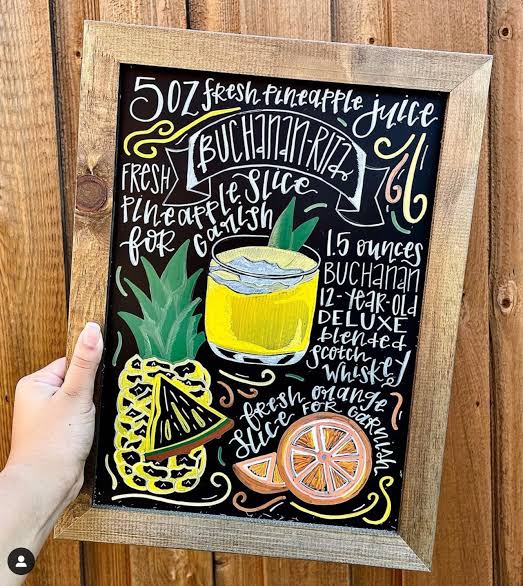 5oz fresh Pineapple juice
BUCHANAN-RITA
FRESH
Pineapple slice
for garnish
1.5 ounces
BUCHANAN
12-YEAR-OLD
DELUXE
blended
Scotch
Whiskey
fresh orange
slice for garnish